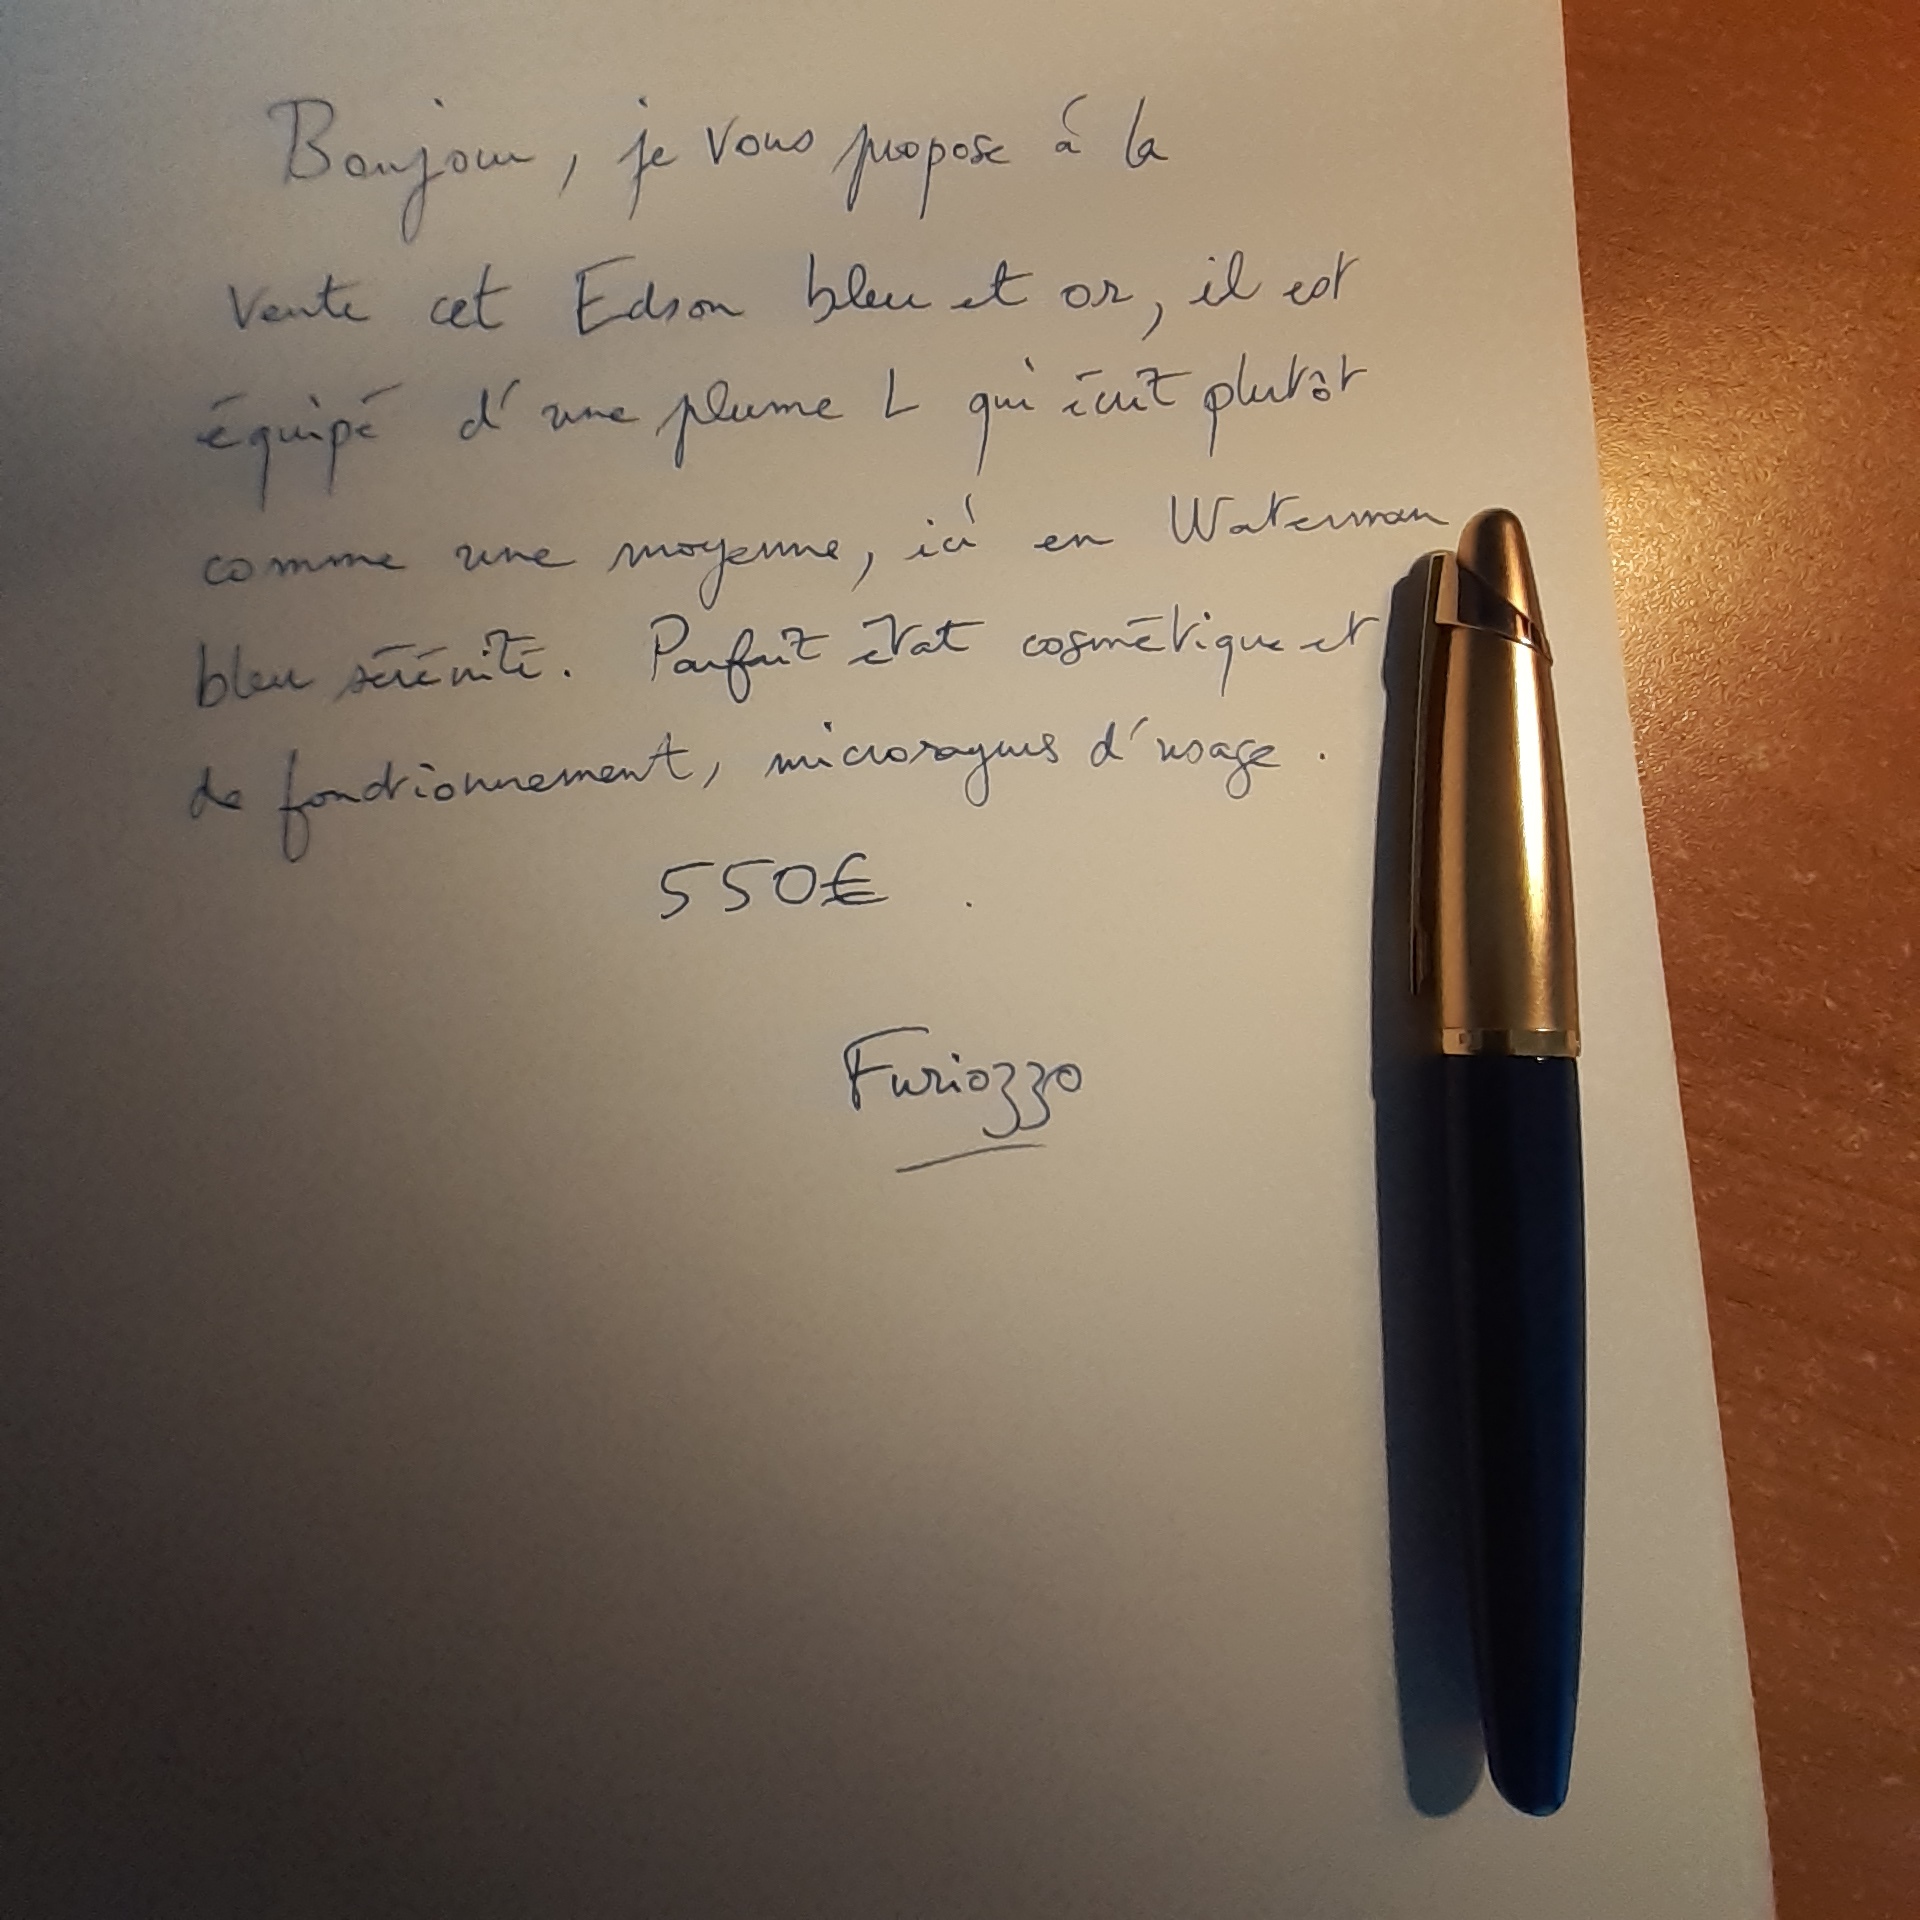 Bonjour, je vous propose à la
vente cet Edson bleu et or, il est
équipé d'une plume L qui écrit plutôt
comme une moyenne, ici en Waterman
bleu sérénité. Parfait état cosmétique et
de fonctionnement, microrayures d'usage.
550€.
Furiozzo